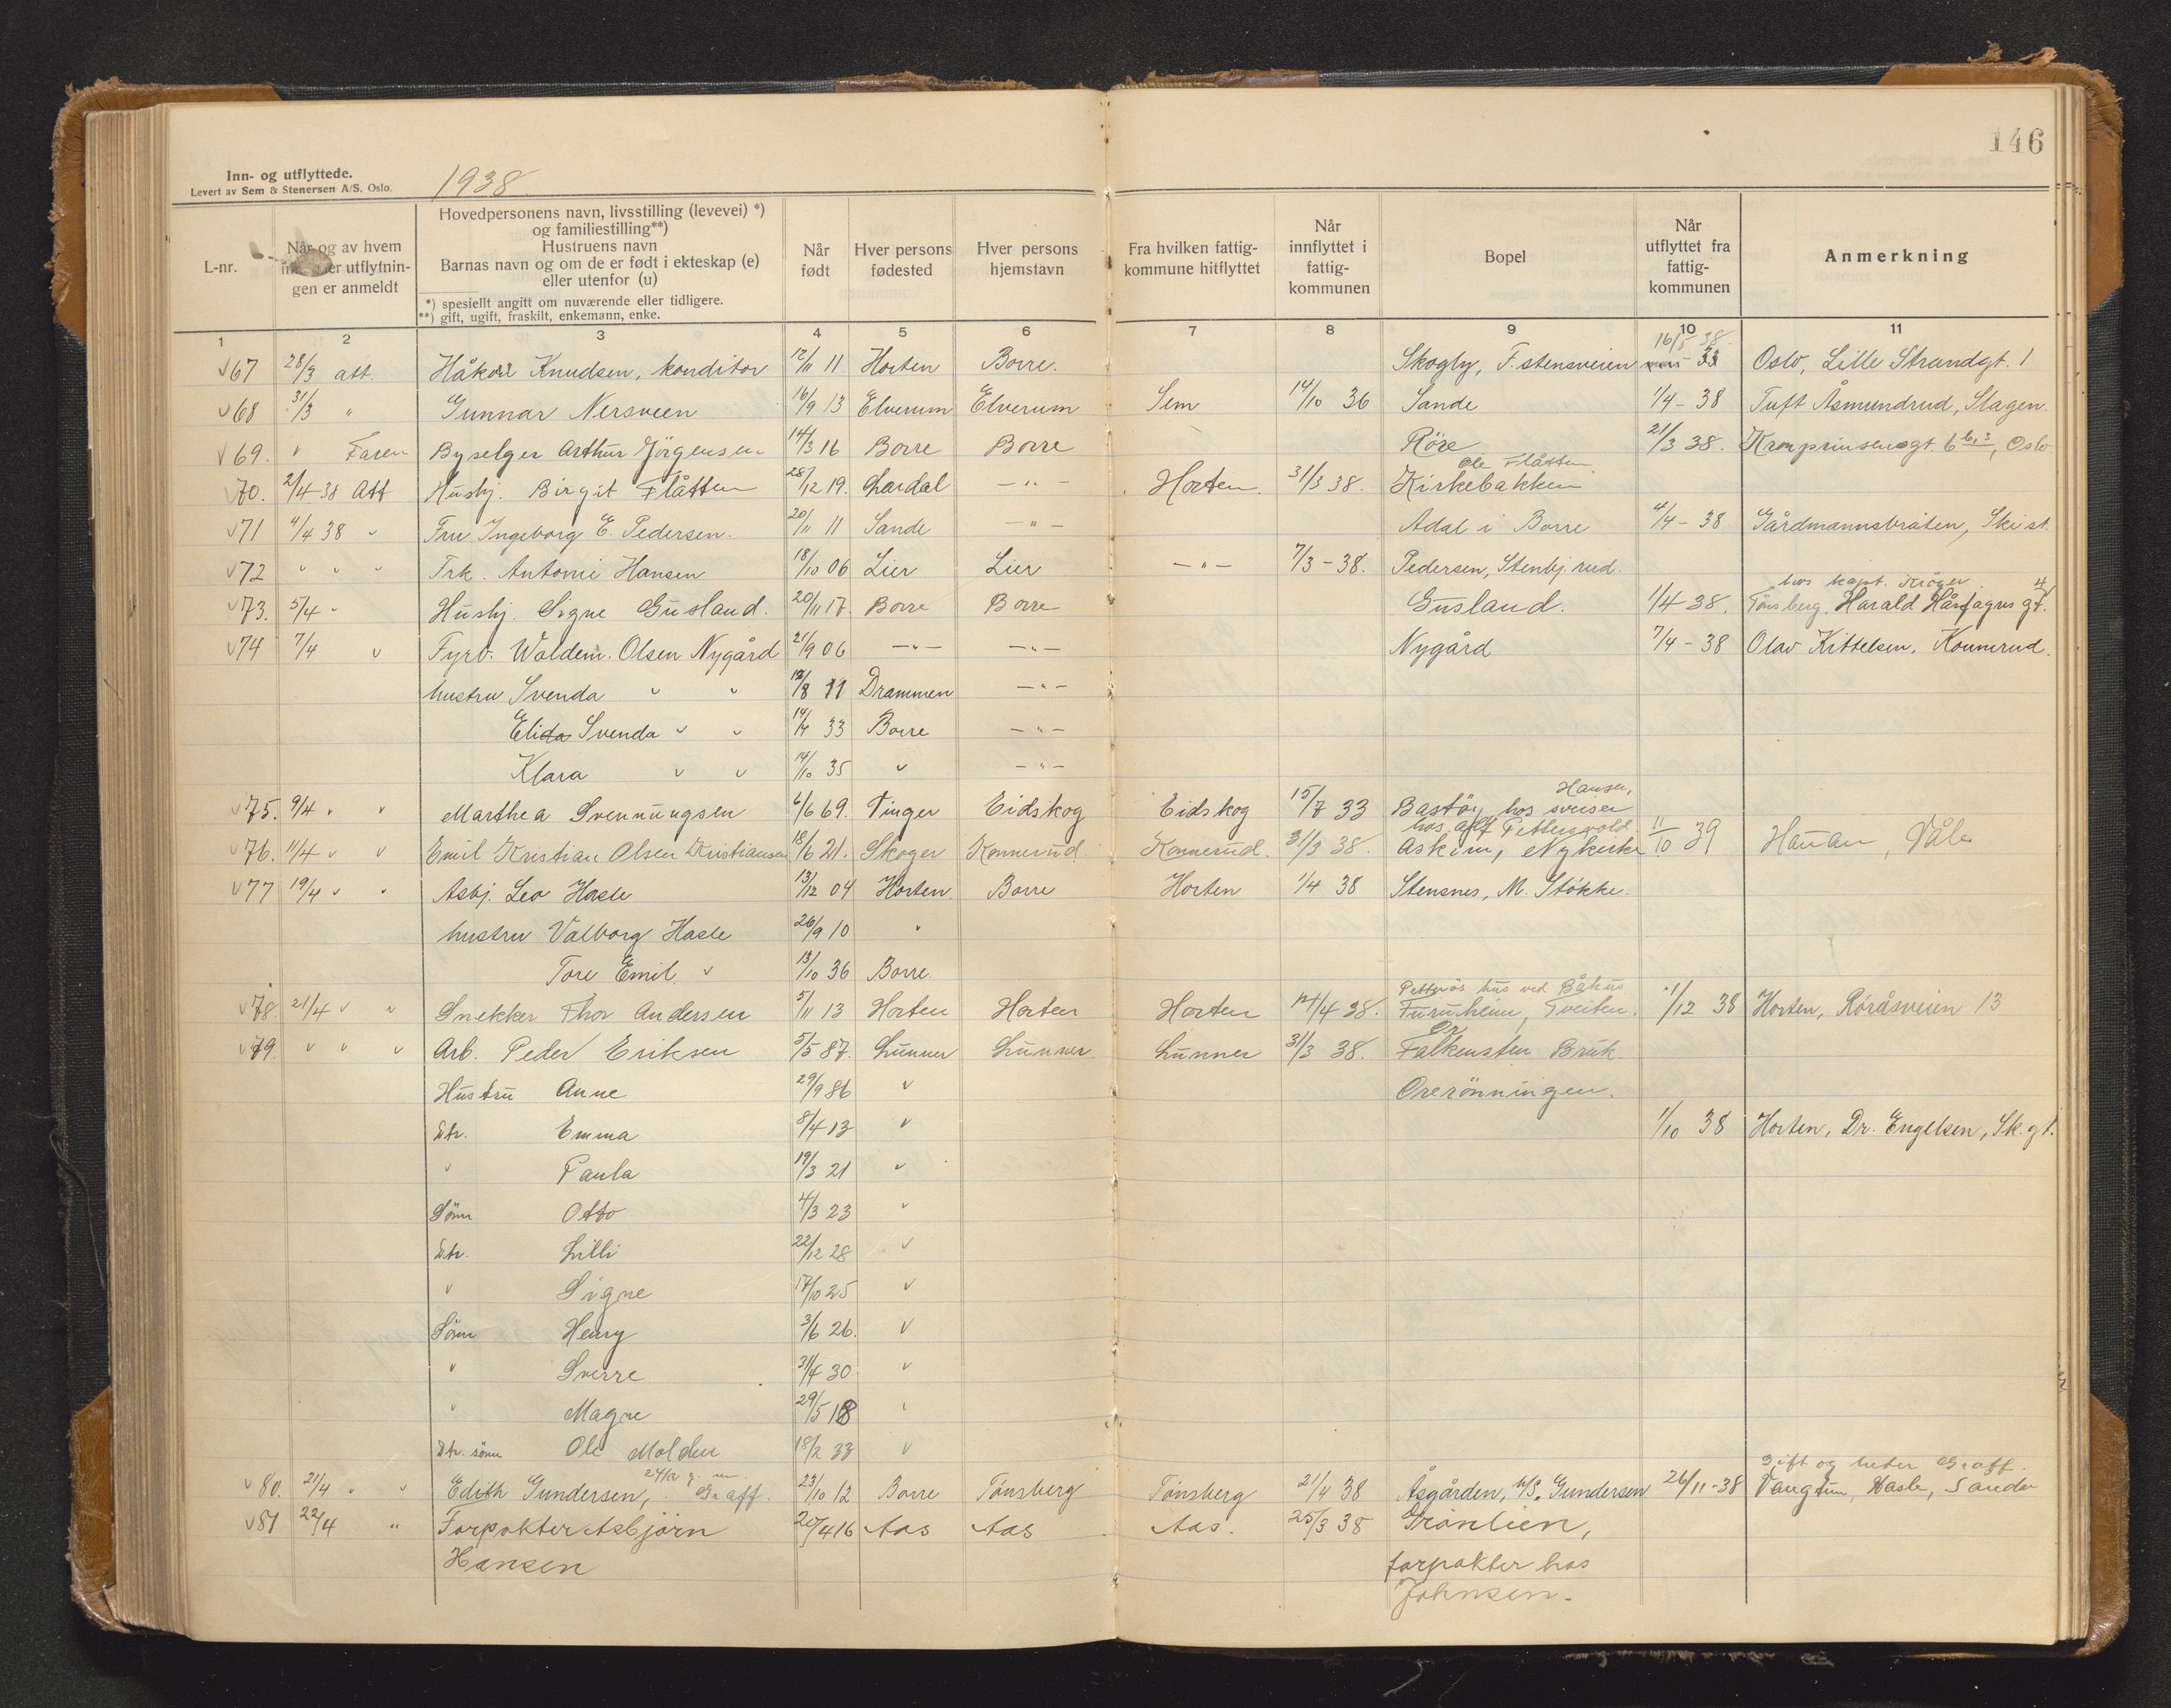 146
Inn- og utflyttede.
Levert av Sem & Stenersen A/S. Oslo.
1938
L-nr.
Når og av hvem
er utflytnin-
gen er anmeldt
Hovedpersonens navn, livsstilling (levevei) *)
og familiestilling**)
Hustruens navn
Barnas navn og om de er født i ekteskap (e)
eller utenfor (u)
*) spesiellt angitt om nuværende eller tidligere.
**) gift, ugift, fraskilt, enkemann, enke.
Når
født
Hver persons
fødested
Hver persons
hjemstavn
Fra hvilken fattig-
kommune hitflyttet
Når
innflyttet i
fattig-
kommunen
Bopel
Når
utflyttet fra
fattig-
kommunen
Anmerkning
1 2 3 4 5 6 7 8 9 10 11
16/8 38.
√67 28/3 att. Håkon Knudsen, konditor 12/11 11 Horten Borre. Skogly, F.stensveien 33 Oslo, Lille Strandgt. 1
√68 31/3 " Gunnar Nersveen 16/9 13 Elverum Elverum Sem 14/10 36 Sande 1/4 - 38 Tuft Åsmundrud, Slagen.
√69. " Faren Byselger Arthur Jörgensen 14/3 16 Borre Borre Röre 21/3 38. Kronprinsensgt. 6, Oslo
Ole Flåtten
√70. 2/4-38 Att Husbj. Birgit Flåtten 28/12 19. Lardal -"- Horten. 31/3 38. Kirkebakken
√71 4/4 38 " Fru Ingeborg E. Pedersen. 20/11 11 Sande -"- Adal i Borre 4/4 - 38 Gårdmannsbråten, Ski st.
√72 " " " Frk. Antonie Hansen 18/10 06 Lier Lier -"- 7/3 - 38. Pedersen, Stenbj.rud.
hos kapt. Kröger 4
√73. 5/4 " Husbj. Signe Gusland. 20/11 17. Borre Borre Gusland. 1/4 38. Tönsberg. Harald Hårfagres gt.
√74 7/4 " Fyrb. Waldem. Olsen Nygård 21/9 06 -"- -"- Nygård 7/4 - 38 Olav Kittelsen, Konnerud.
hustru Svenda " " 12/8 11 Drammen -"-
Elida Svenda " " 14/4 33 Borre -"-
Klara " " 14/10 35 " -"-
Hansen,
√75. 9/4 " " Marthea Svennungsen 6/6 69. Vinger Eidskog Eidskog 15/7 33 Bastöy hos sveiser
hos Alf Petterwold
√76. 11/4 " " Emil Kristian Olsen Kristiansen 18/6 21. Skoger Konnerud Konnerud. 31/3 38. Askim, Nykirke 11/10 39 Hauan, Våle
√77 19/4 " " Asbj. Leo Hasle 13/12 04 Horten Borre Horten 1/4 38 Stensnes, M. Stökke.
hustru Valborg Hasle 26/9 10 "
Tore Emil " 13/10 36 Borre.
Petterös hus ved Båhus
√78. 21/4 " " Snekker Thor Andersen 5/11 13 Horten Horten Horten 12/4 38. Furuheim, Tveiten. 1/12 38 Horten, Röråsveien 13
√79. " " " Arb. Peder Eriksen 5/5 87. Lunner Lunner Lunner 31/3 38. Falkensten Bruk.
Hustru Anne 29/9 86 " Orerönningen.
Dtr. Emma 8/4 13 " 1/10 38 Horten, Dr. Engelsen, Sk.gt.
" Paula 19/3 21 "
Sönn Otto 4/3 23 "
Dtr. Lilli 22/12 28 "
" Signe 17/10 25 "
Sönn Henry 3/6 26. "
" Sverre 31/4 30 "
" Magne 29/5 18 "
Dtr. sönn Ole Molden 18/2 33 "
gift og heter Graff.
√80. 21/4 " " Edith Gundersen, Graff. 23/10 12 Borre Tönsberg Tönsberg 21/4 38 Åsgården, h/S. Gundersen 26/11-38 Vangtun, Hasle, Sande
√81 22/4 " Forpakter Asbjörn 20/4 16 Aas Aas Aas. 25/3 38 Grönlien,
Hansen forpakter hos
Johnsen.